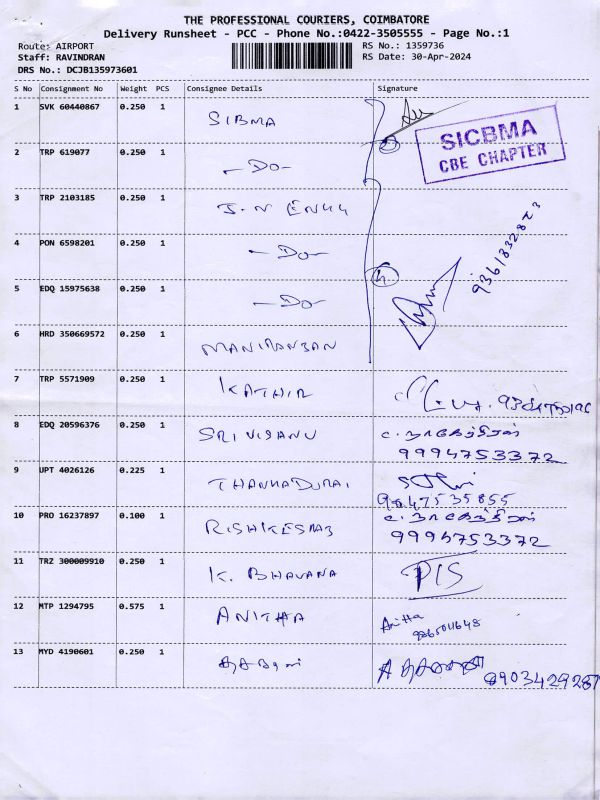 THE PROFESSIONAL COURIERS, COIMBATORE
Delivery Runsheet - PCC - Phone No.:0422-3505555 - Page No.:1
Route: AIRPORT
RS No.: 1359736
Staff: RAVINDRAN
RS Date: 30-Apr-2024
DRS No.: DCJB135973601
S No Consignment No Weight PCS Consignee Details Signature
1 SVK 60440867 0.250 1 SIBMA
SICBMA
CBE CHAPTER
2 TRP 619077 0.250 1 -Do-
3 TRP 2103185 0.250 1
4 PON 6598201 0.250 1 -Do-
5 EDQ 15975638 0.250 1 -Do-
6 HRD 350669572 0.250 1 MANIRANJAN
7 TRP 5571909 0.250 1 KATHIR
8 EDQ 20596376 0.250 1 SRI VISHNU
9994753372
9 UPT 4026126 0.225 1 THANGADURAI
9047535855
10 PRO 16237897 0.100 1
9994753372
11 TRZ 300009910 0.250 1 K. BHAVANA
12 MTP 1294795 0.575 1 ANITHA Anitha
13 MYD 4190601 0.250 1
8903429287